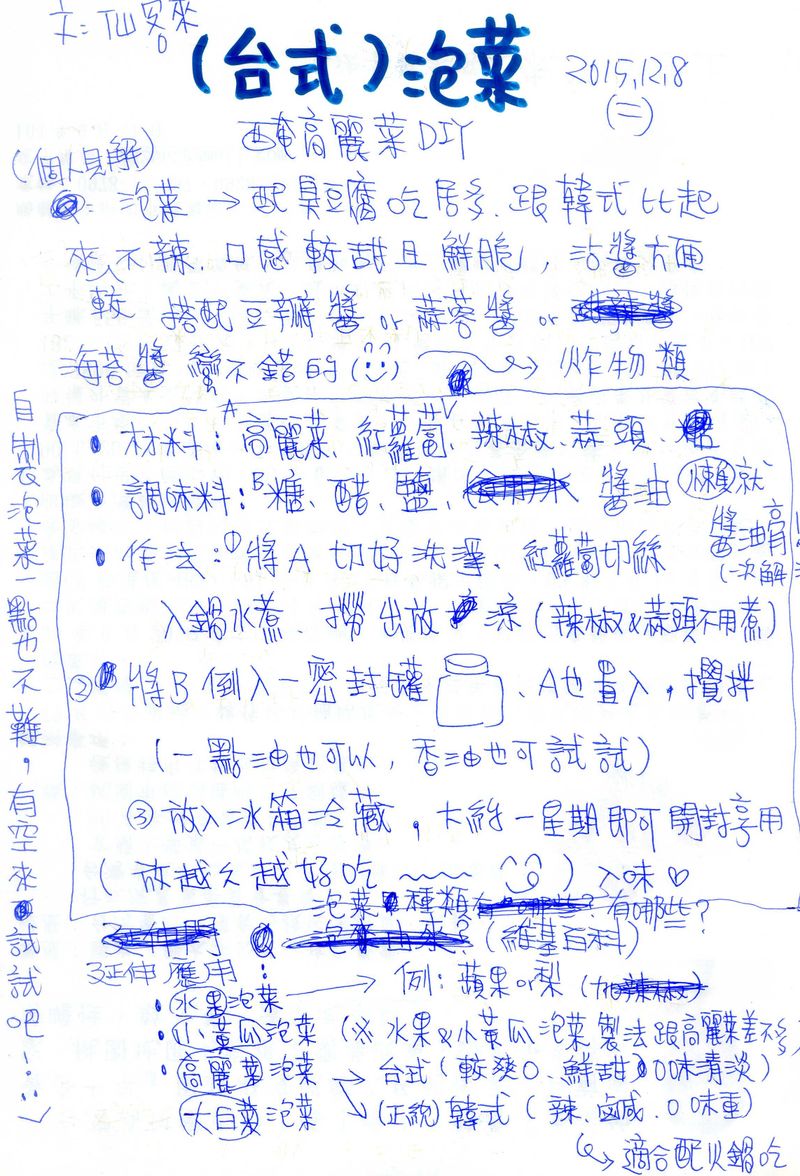 文=TW客來
(台式)泡菜
2015.12.8
(二)
醃高麗菜DIY
(個人見解)
泡菜→配臭豆腐吃居多、跟韓式比起
來較不辣、口感較甜且鮮脆、沾醬方面
搭配豆瓣醬or蒜蓉醬or
海苔醬蠻不錯的(☺)→炸物類
自製泡菜一點也不難,有空來試試吧!
• 材料:A高麗菜、紅蘿蔔、辣椒、蒜頭、
• 調味料:B糖、醋、鹽、醬油(懶就
醬油膏!
(一次解
• 作法:①將A切好洗淨、紅蘿蔔切絲
入鍋水煮、撈出放涼(辣椒&蒜頭不用煮)
②將B倒入一密封罐、A也置入,攪拌
(一點油也可以,香油也可試試)
③放入冰箱冷藏,大約一星期即可開封享用
(放越久越好吃~~~☺)入味♡
泡菜種類有哪些?
(維基百科)
延伸應用:
•水果泡菜→例:蘋果or梨
•小黃瓜泡菜(※水果&小黃瓜泡菜製法跟高麗菜差不多
•高麗菜泡菜→台式(較爽口、鮮甜、口味清淡)
大白菜泡菜→(正統)韓式(辣、鹹、口味重)
↳適合配火鍋吃